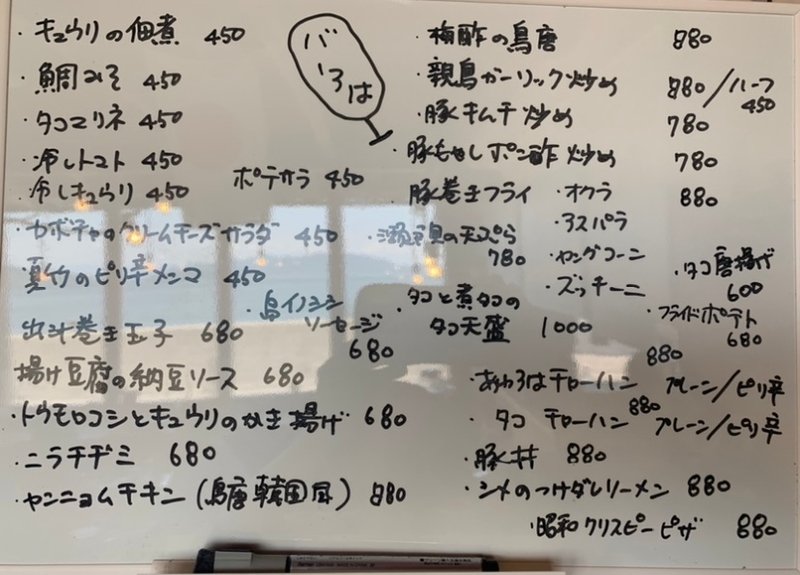 バ
いろは
・キュウリの佃煮 450
・鯛みそ 450
・タコマリネ 450
・冷しトマト 450
・冷しキュウリ 450
ポテサラ 450
・カボチャのクリームチーズサラダ 450
・夏竹のピリ辛メンマ 450
・島イノシシ
ソーセージ
680
出汁巻き玉子 680
揚げ豆腐の納豆ソース 680
・トウモロコシとキュウリのかき揚げ 680
・ニラチヂミ 680
・ヤンニョムチキン(鳥唐韓国風) 880
・梅酢の鳥唐 880
・親鳥ガーリック炒め 880/ハーフ
450
・豚キムチ炒め 780
・豚もやしポン酢炒め 780
豚巻きフライ ・オクラ 880
・アスパラ
・ヤングコーン
・ズッチーニ
・瀬戸貝の天ぷら
780
・タコ唐揚げ
600
・タコと煮タコの
タコ天盛 1000
・フライドポテト
680
・あいろはチャーハン 880 プレーン/ピリ辛
・タコチャーハン 880 プレーン/ピリ辛
・豚丼 880
・シメのつけダレラーメン 880
・昭和クリスピーピザ 880